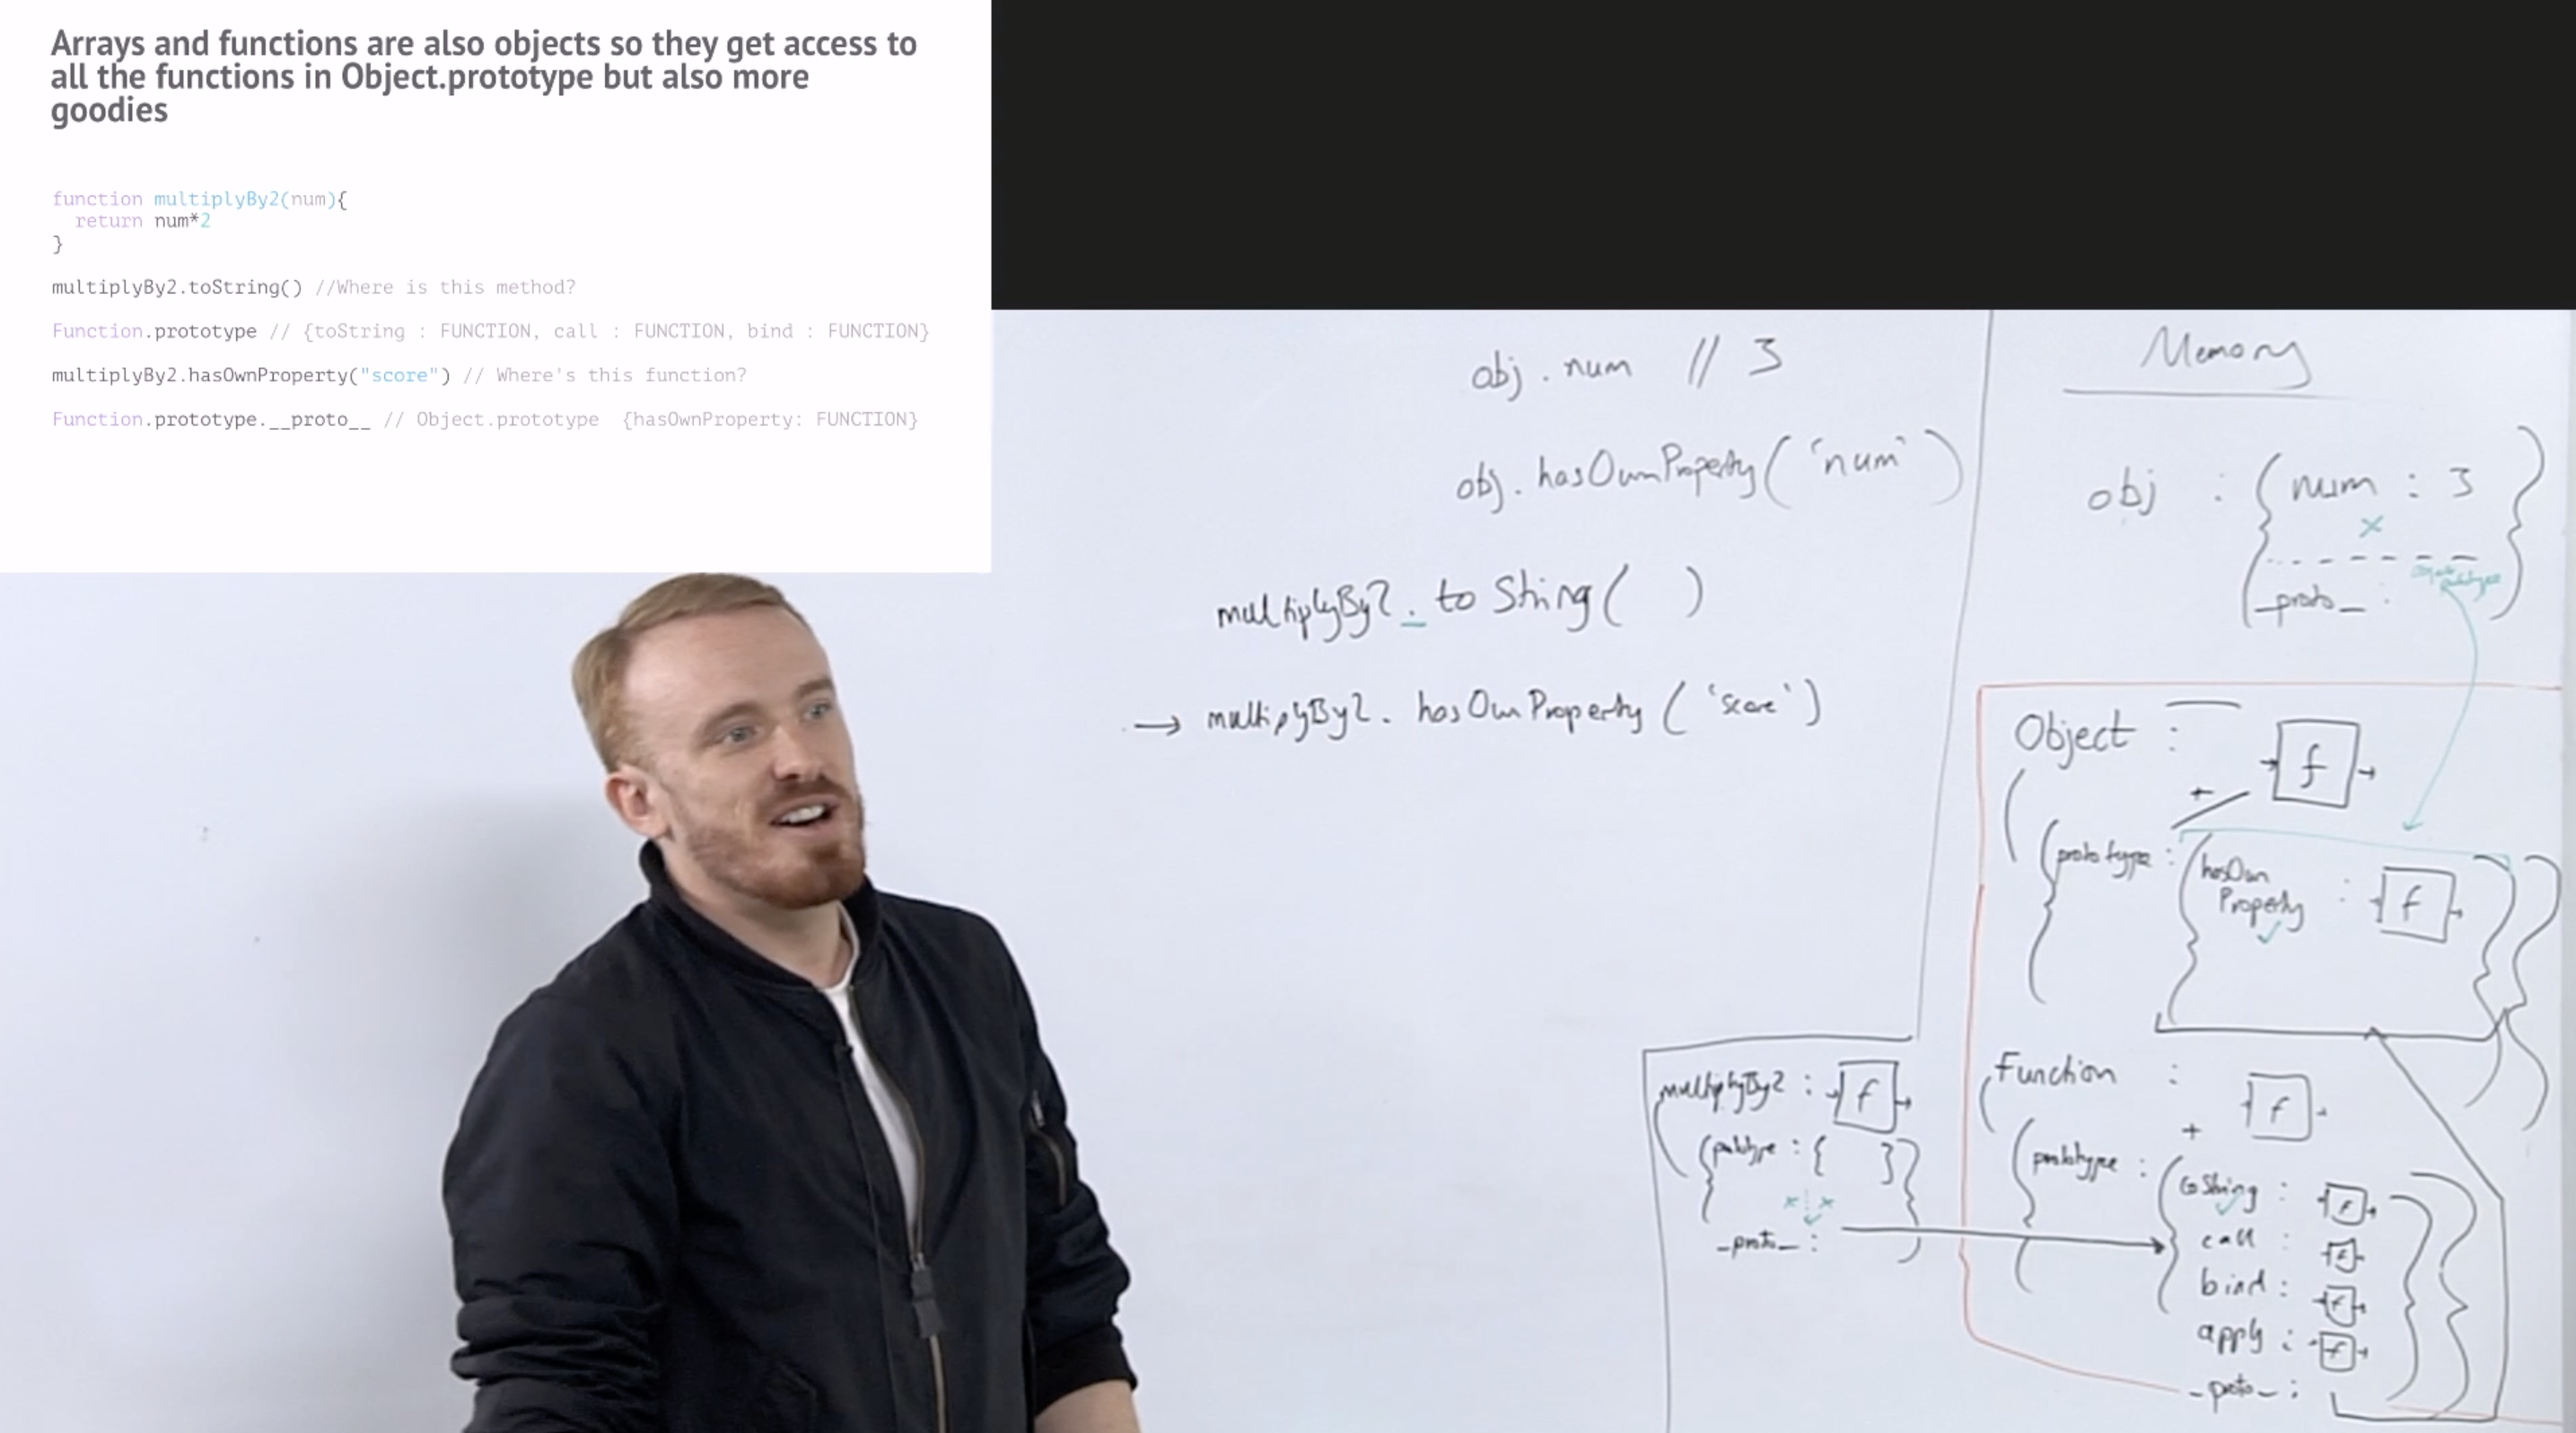 Arrays and functions are also objects so they get access to
all the functions in Object.prototype but also more
goodies
function multiplyBy2(num){
return num*2
}
multiplyBy2.toString() //Where is this method?
Function.prototype // {toString : FUNCTION, call : FUNCTION, bind : FUNCTION}
multiplyBy2.hasOwnProperty("score") // Where's this function?
Function.prototype.__proto__ // Object.prototype {hasOwnProperty: FUNCTION}
obj . num // 3
obj. hasOwnProperty( 'num' )
multiplyBy2 . toString( )
→ multiplyBy2 . hasOwnProperty ( 'score' )
Memory
obj : { num : 3
_proto_ : }
Object : f
+
{ prototype : { hasOwn
Property : f } }
multiplyBy2 : f
( { prototype : { } }
_proto_ : )
Function : f
+
{ prototype : { toString : f
call : f
bind : f
apply : f
_proto_ : } }